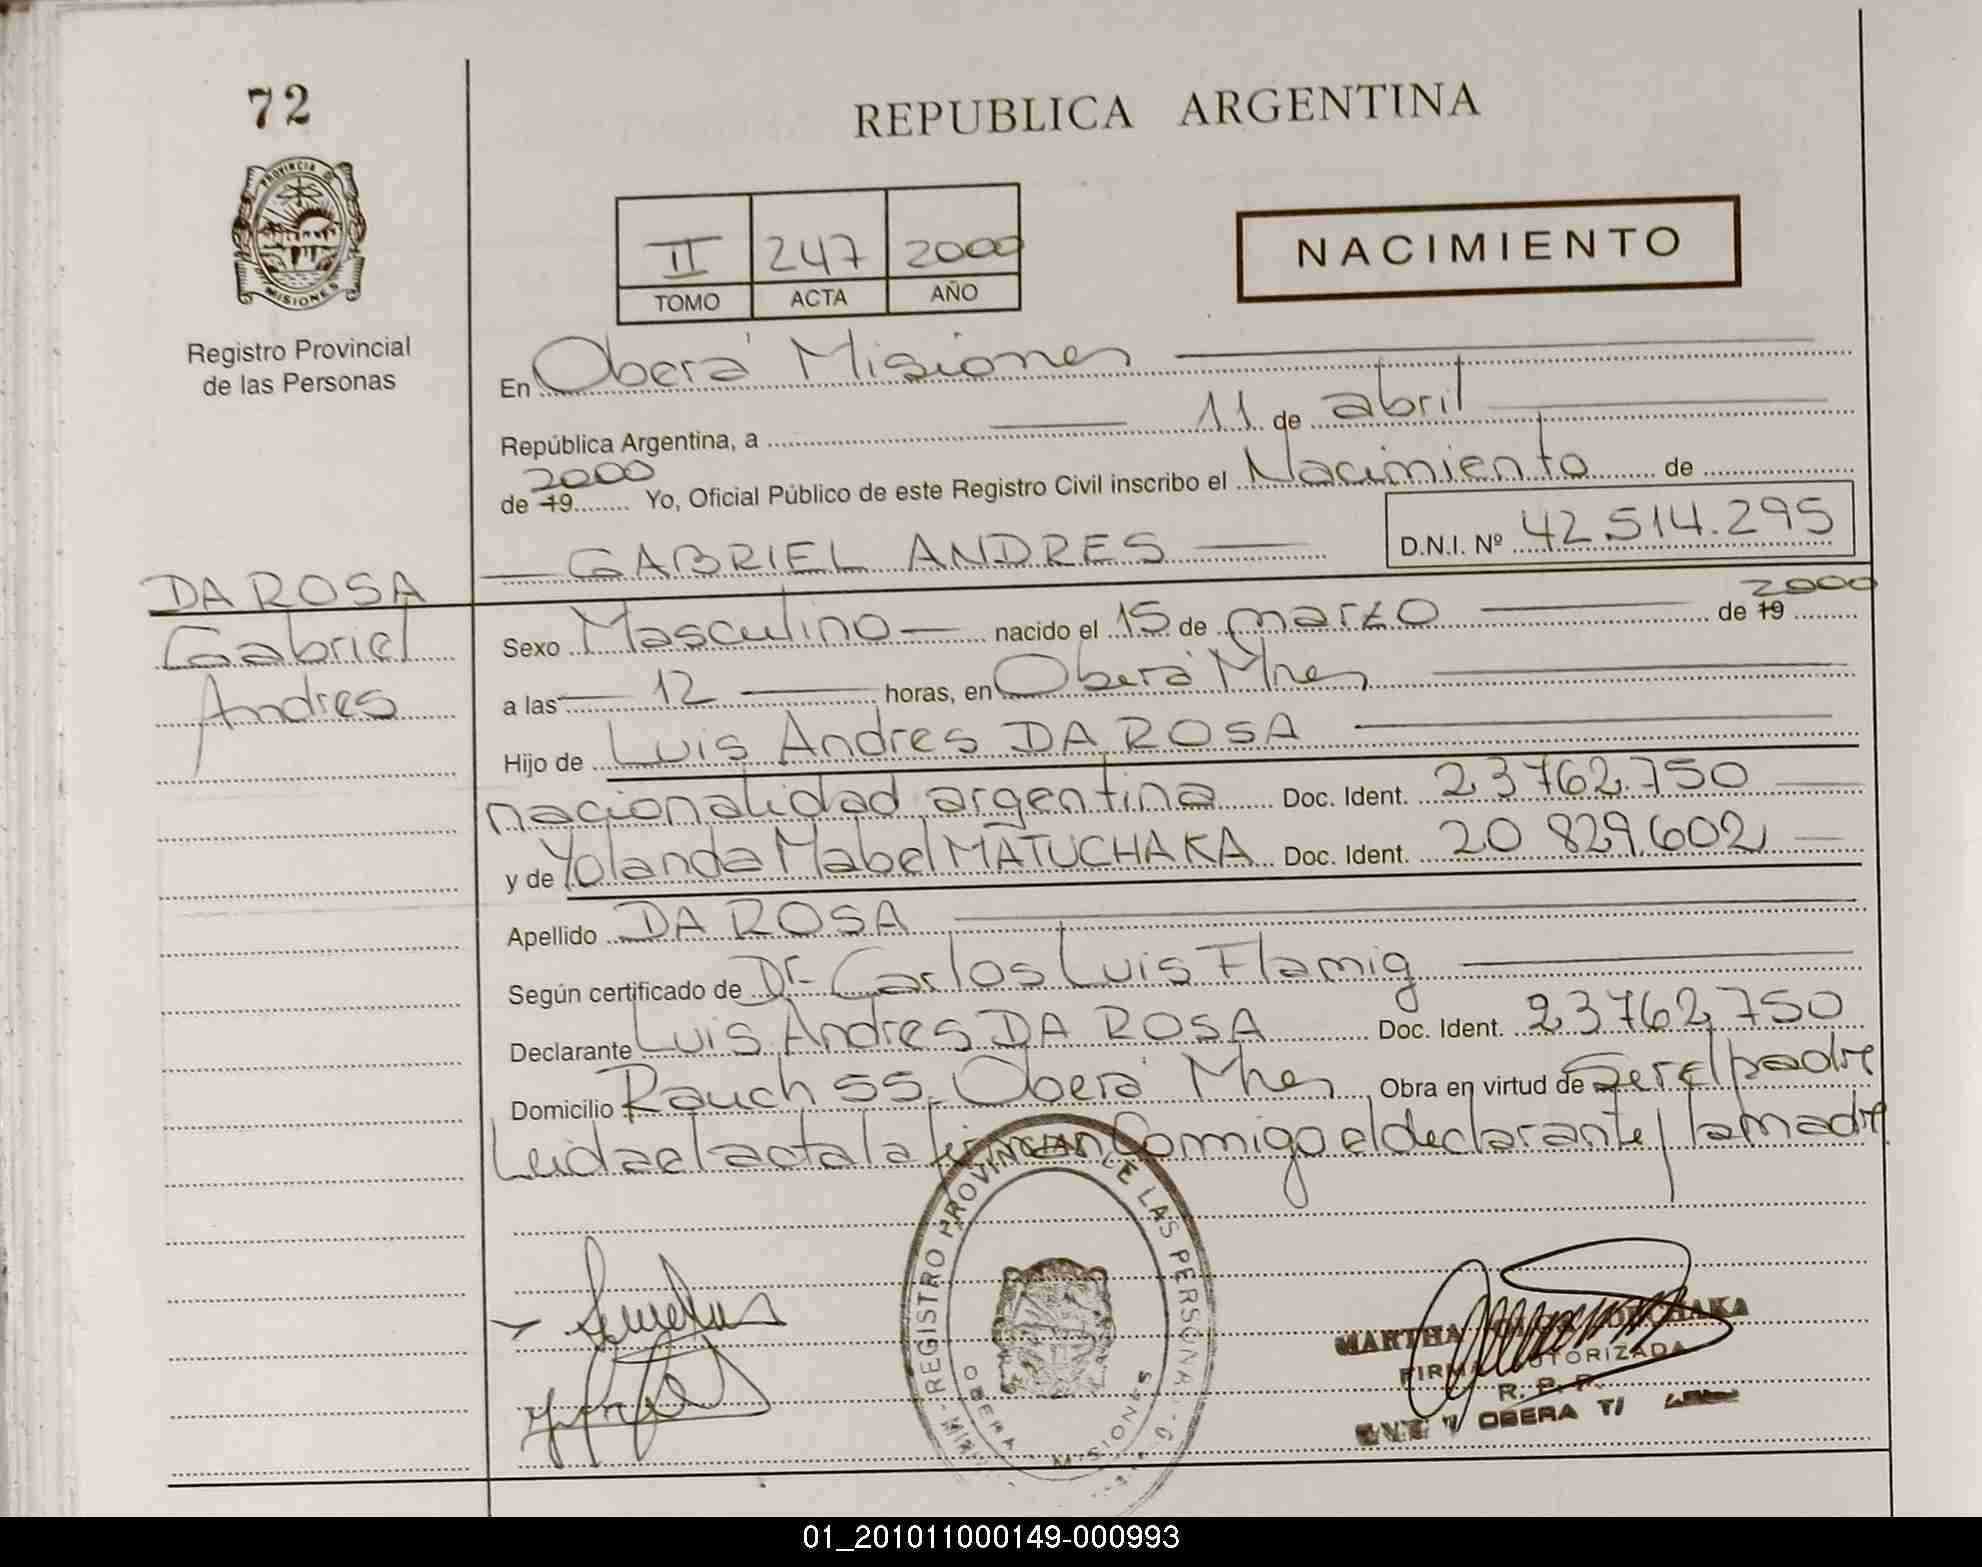 72
REPUBLICA ARGENTINA
PROVINCIA D
MISIONES
II 247 2000
TOMO ACTA AÑO
NACIMIENTO
Registro Provincial
de las Personas
En Oberá Misiones
República Argentina, a 11 de abril
2000
de 19 Yo, Oficial Público de este Registro Civil inscribo el Nacimiento de
GABRIEL ANDRES D.N.I. Nº 42.514.295
DA ROSA
Gabriel
Andres
2000
Sexo Masculino nacido el 15 de marzo de 19
a las 12 horas, en Oberá Mnes
Hijo de Luis Andres DA ROSA
nacionalidad argentina Doc. Ident. 23.762.750
y de Yolanda Mabel MATUCHAKA Doc. Ident. 20 829.602
Apellido DA ROSA
Según certificado de Dr. Carlos Luis Flamig
Declarante Luis Andres DA ROSA Doc. Ident. 23.762.750
Domicilio Rauch 55 - Oberá Mnes Obra en virtud de ser el padre
Leida el acta la firman Conmigo el declarante y la madre
REGISTRO PROVINCIAL DE LAS PERSONAS
OBERA MISIONES
MARTHA
FIRMA AUTORIZADA
R. P. P.
OBERA
01_201011000149-000993